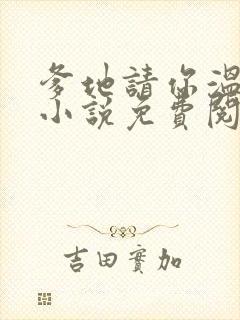 爹地請你溫
小說免費閱
吉田實加